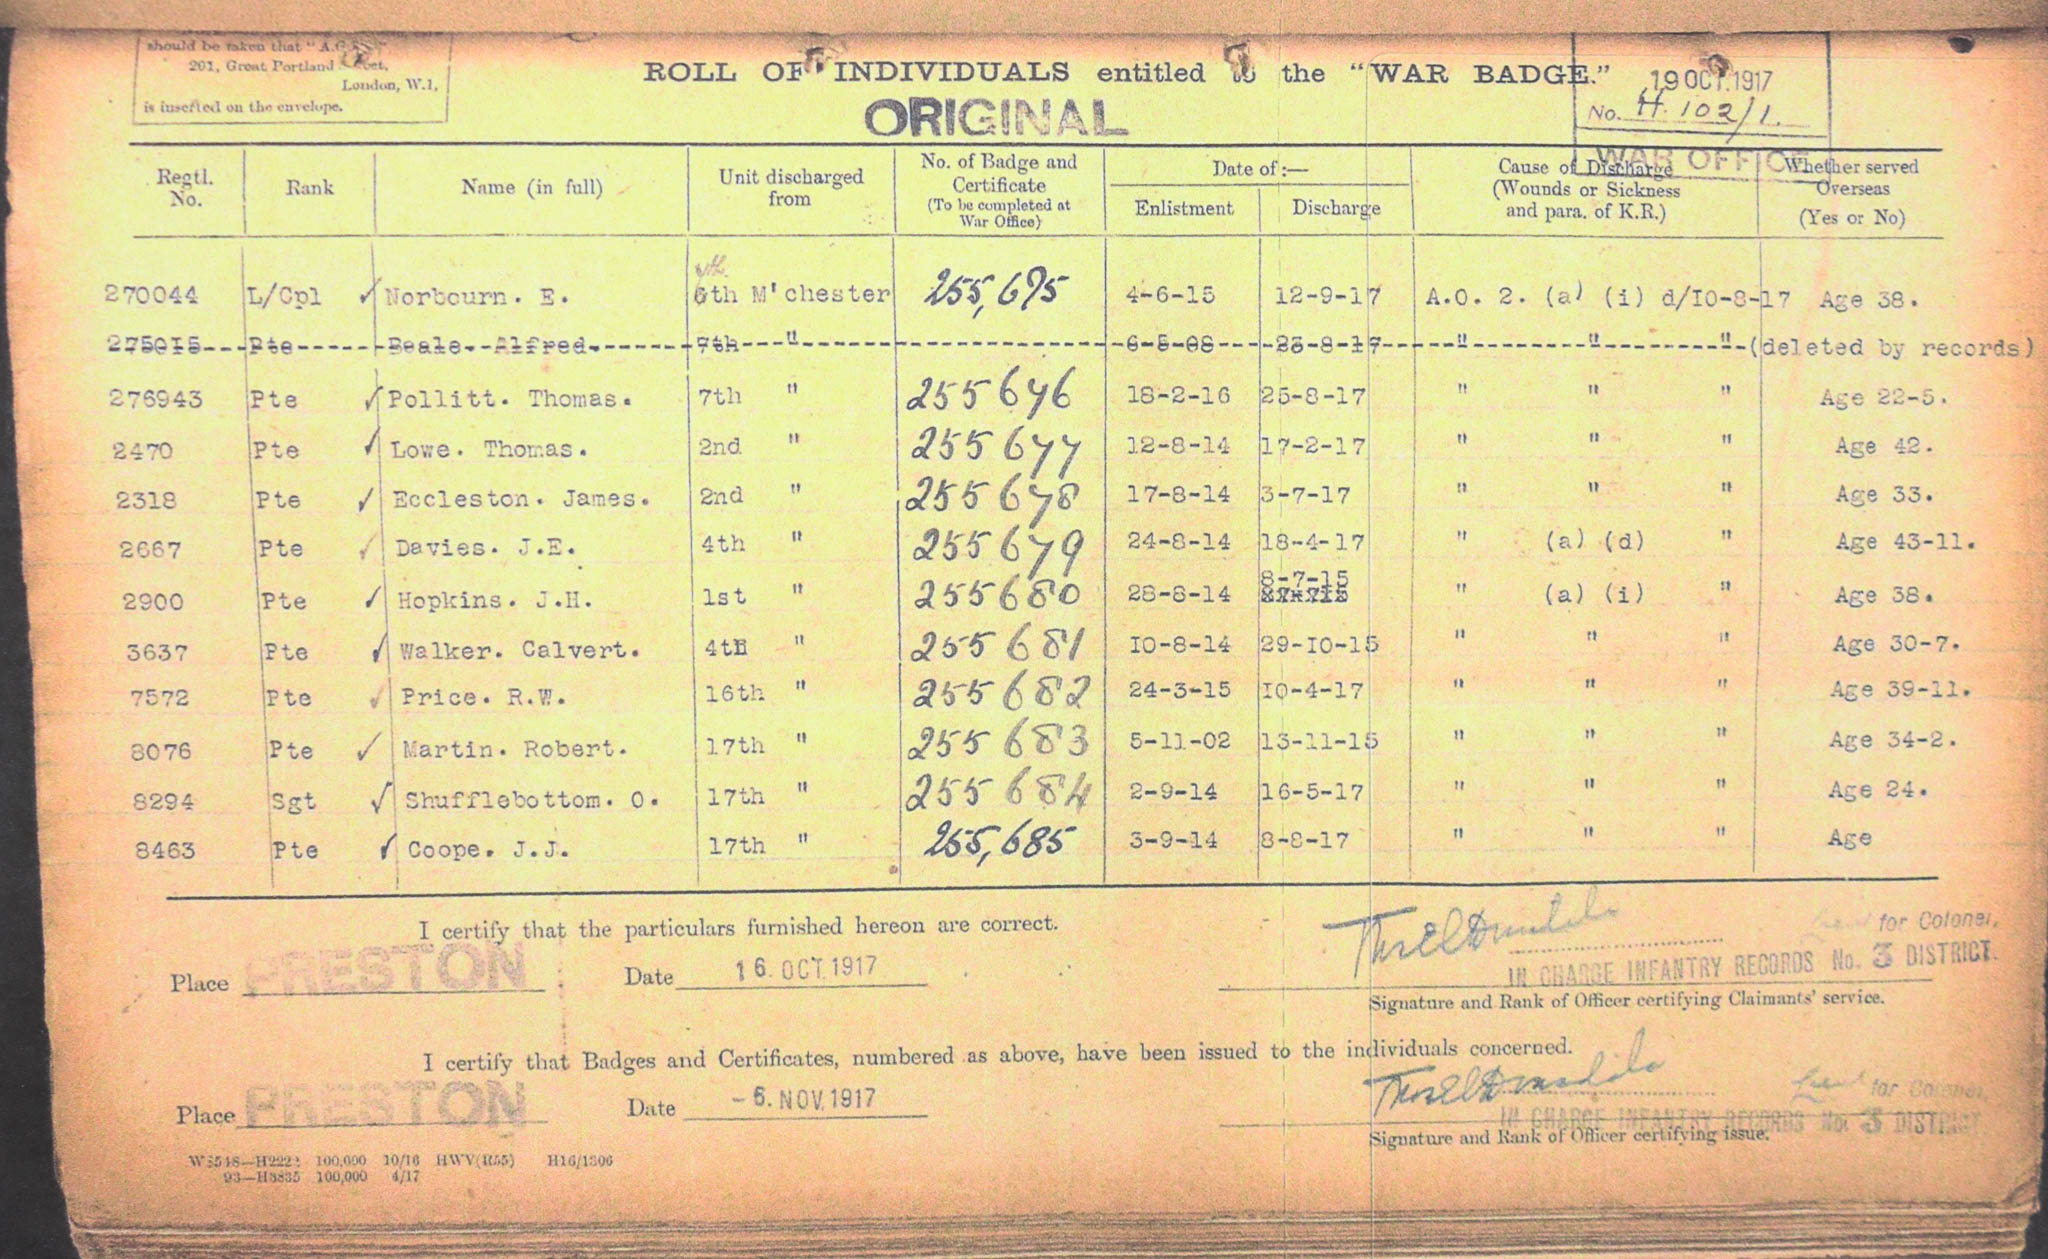 should be taken that "A.G.
201, Great Portland Street,
London, W.1,
is inserted on the envelope.
ROLL OF INDIVIDUALS entitled to the "WAR BADGE."
ORIGINAL
19 OCT. 1917
No. H. 102/1.
WAR OFFICE
Regtl. No. Rank Name (in full) Unit discharged from No. of Badge and Certificate (To be completed at War Office) Date of :— Enlistment Discharge Cause of Discharge (Wounds or Sickness and para. of K.R.) Whether served Overseas (Yes or No)
270044 L/Cpl ✓ Norbourn. E. 6th M'chester 255,675 4-6-15 12-9-17 A.O. 2. (a) (i) d/10-8-17 Age 38.
275015 Pte Beale. Alfred. 7th " 6-5-08 23-8-17 " " " (deleted by records)
276943 Pte ✓ Pollitt. Thomas. 7th " 255676 18-2-16 25-8-17 " " " Age 22-5.
2470 Pte ✓ Lowe. Thomas. 2nd " 255677 12-8-14 17-2-17 " " " Age 42.
2318 Pte ✓ Eccleston. James. 2nd " 255678 17-8-14 3-7-17 " " " Age 33.
2667 Pte ✓ Davies. J.E. 4th " 255679 24-8-14 18-4-17 " (a) (d) " Age 43-11.
2900 Pte ✓ Hopkins. J.H. 1st " 255680 28-8-14 8-7-15 " (a) (i) " Age 38.
3637 Pte ✓ Walker. Calvert. 4tH " 255681 10-8-14 29-10-15 " " " Age 30-7.
7572 Pte ✓ Price. R.W. 16th " 255682 24-3-15 10-4-17 " " " Age 39-11.
8076 Pte ✓ Martin. Robert. 17th " 255683 5-11-02 13-11-15 " " " Age 34-2.
8294 Sgt ✓ Shufflebottom. O. 17th " 255684 2-9-14 16-5-17 " " " Age 24.
8463 Pte ✓ Coope. J.J. 17th " 255,685 3-9-14 8-8-17 " " " Age
I certify that the particulars furnished hereon are correct.
for Colonel,
IN CHARGE INFANTRY RECORDS No. 3 DISTRICT.
Place PRESTON Date 16. OCT. 1917
Signature and Rank of Officer certifying Claimants' service.
I certify that Badges and Certificates, numbered as above, have been issued to the individuals concerned.
for Colonel,
IN CHARGE INFANTRY RECORDS No. 3 DISTRICT.
Place PRESTON Date -6. NOV. 1917
Signature and Rank of Officer certifying issue.
100,000 10/16 HWV(R55) H16/1306
93—H3835 100,000 4/17